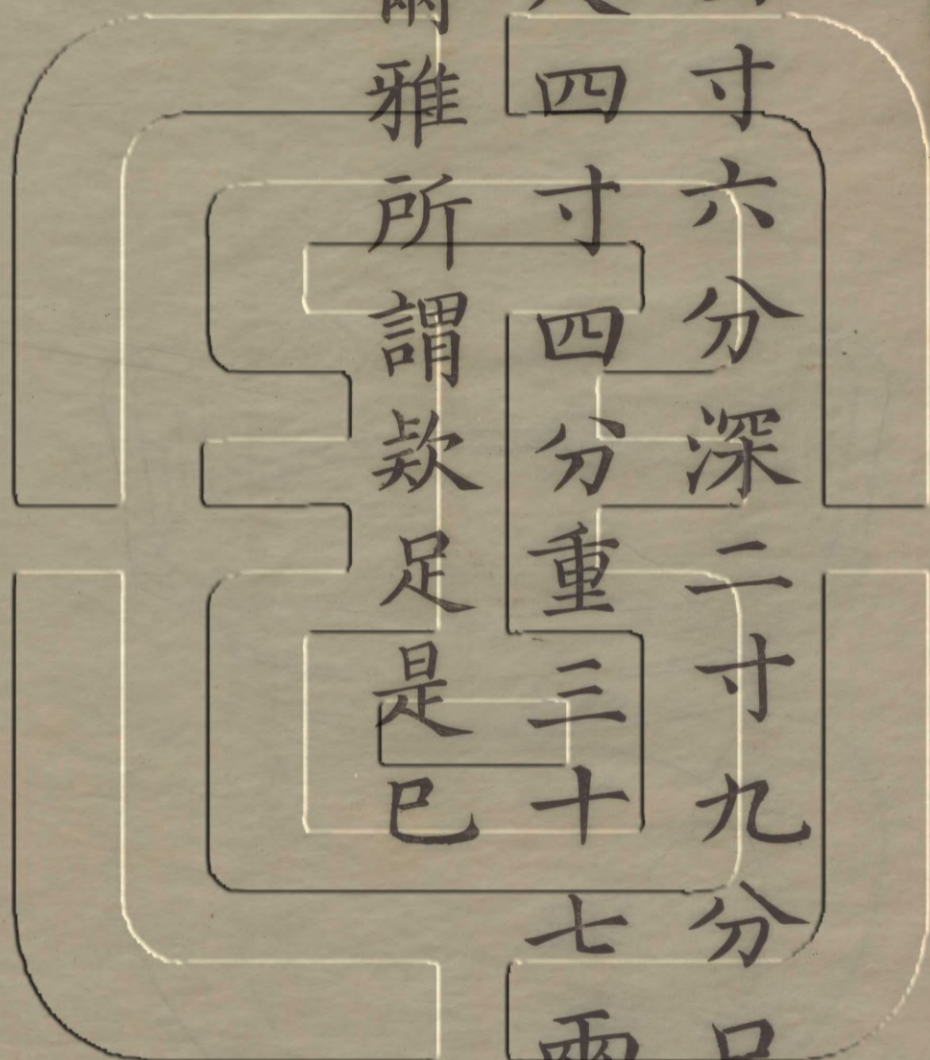 寸六分深二寸九分口
四寸四分重三十七兩
爾雅所謂欵足是已